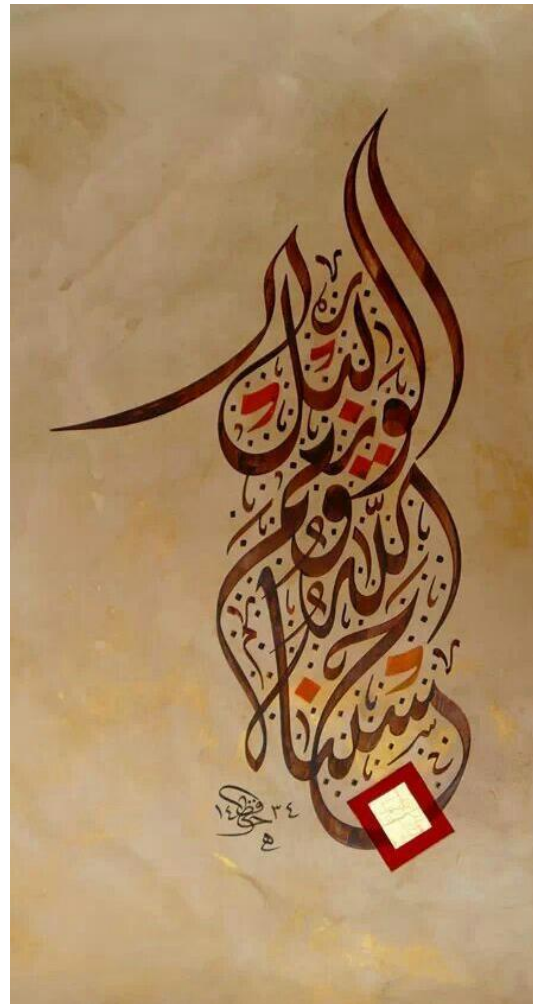 حسبنا الله ونعم الوكيل
١٤٣٤
ه